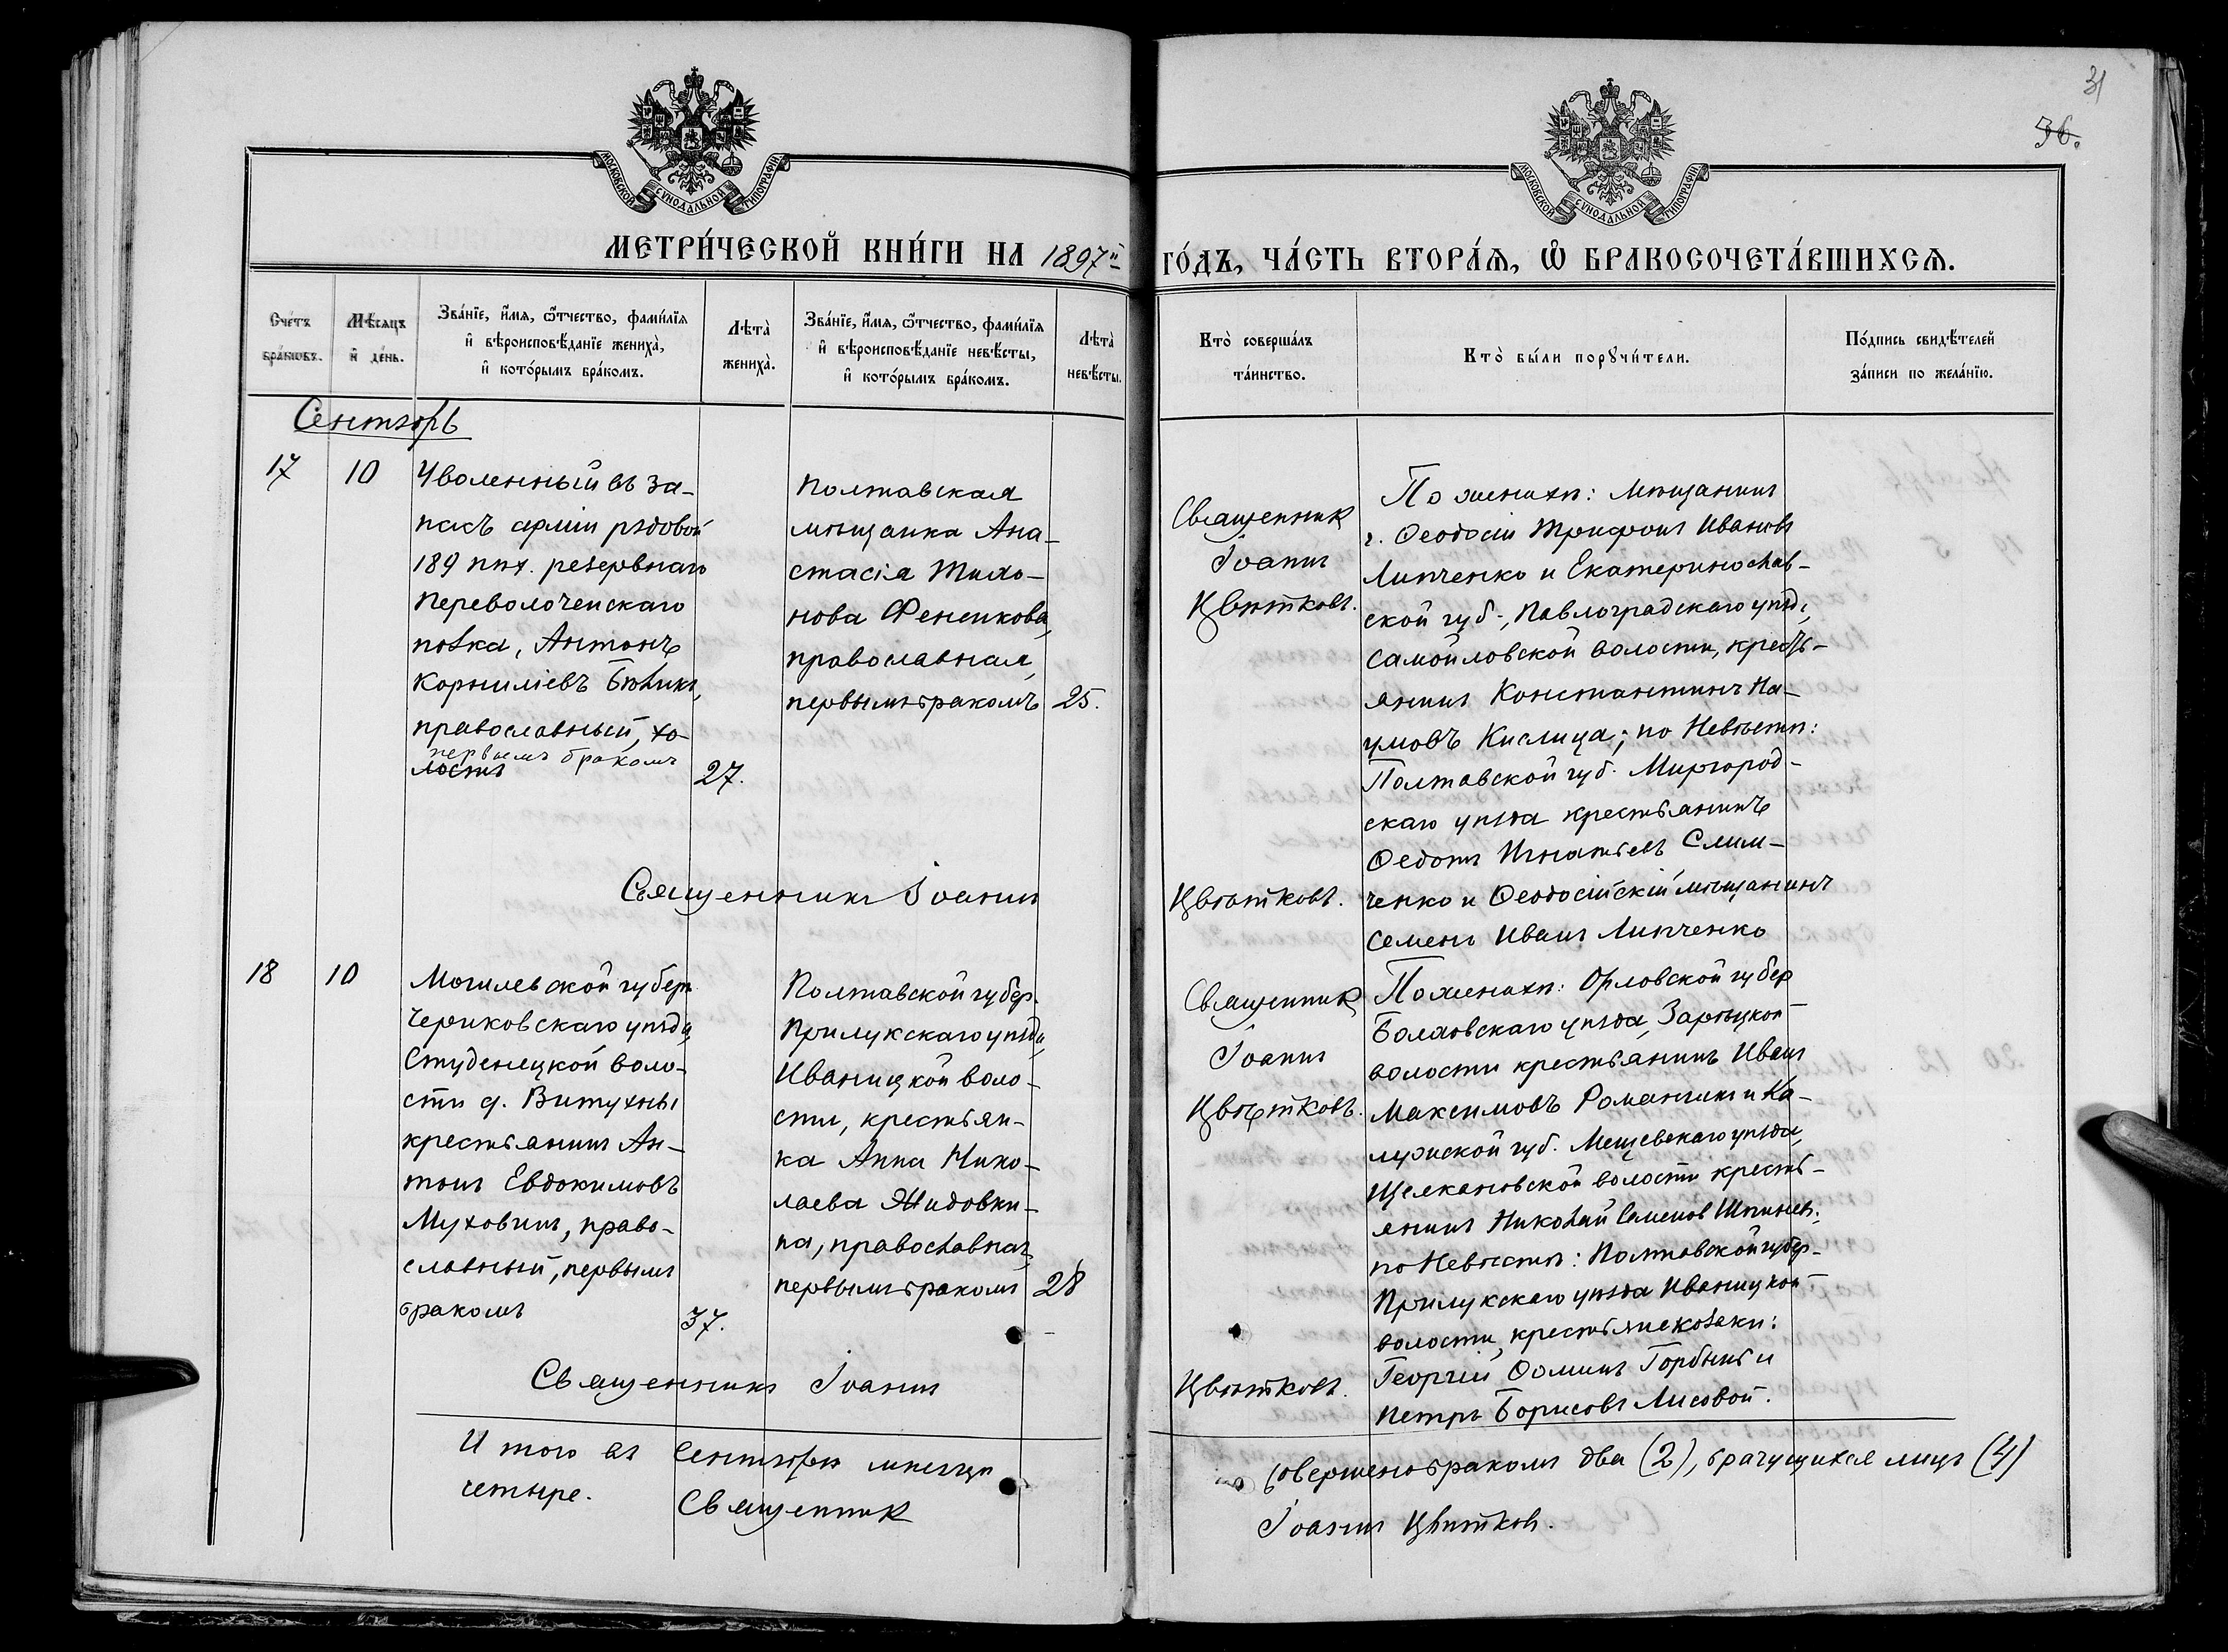 31
36.
МОСКОВСКОЙ СѴНОДАЛЬНОЙ ТИПОГРАФІИ
МОСКОВСКОЙ СѴНОДАЛЬНОЙ ТИПОГРАФІИ
МЕТРИ́ЧЕСКОЙ КНИ́ГИ НА 1897й
ГО́ДЪ, ЧА́СТЬ ВТОРА́Я, Ѡ БРАКОСОЧЕТА́ВШИХСЯ.
Сче́тъ
бра́ковъ.
Мѣ́сяцъ
и҆ де́нь.
Зва́нїе, и҆́мя, ѻ҆́тчество, фами́лїя
и҆ вѣроисповѣ́данїе жениха̀,
и҆ кото́рымъ бра́комъ.
Лѣта̀
жениха̀.
Зва́нїе, и҆́мя, ѻ҆́тчество, фами́лїя
и҆ вѣроисповѣ́данїе невѣ́сты,
и҆ кото́рымъ бра́комъ.
Лѣта̀
невѣ́сты.
Кто̀ соверша́лъ
та́инство.
Кто̀ бы́ли порꙋчи́тели.
По́дпись свидѣ́телей
за́писи по жела́нїю.
Сентябрь
17
10
Уволенный въ за-
пасъ арміи рядовой
189 пѣх. резервнаго
Переволоченскаго
полка, Антонъ
Корниліевъ Бѣликъ,
православный, хо-
первымъ бракомъ
лостъ
27.
Полтавская
мѣщанка Ана-
стасія Тихо-
нова Фененкова,
православная,
первымъ бракомъ
25.
Священникъ
Іоаннъ
Цвѣтковъ.
По женихѣ: Мѣщанинъ
г. Ѳеодосіи Трифонъ Ивановъ
Липченко и Екатеринослав-
ской губ., Павлоградскаго уѣзд.,
Самойловской волости, кресть-
янинъ Константинъ На-
умовъ Кислица; по Невѣстѣ:
Полтавской губ. Миргород-
скаго уѣзда крестьянинъ
Ѳедотъ Игнатьевъ Слим-
ченко и Ѳеодосійскій мѣщанинъ
Семенъ Иванъ Липченко
Священникъ Іоаннъ
Цвѣтковъ.
18
10
Могилевской губерн
Чериковскаго уѣзда,
Студенецкой воло-
сти д. Витухны
крестьянинъ Ан-
тонъ Евдокимовъ
Муховинъ, право-
славный, первымъ
бракомъ
37.
Полтавской губер.
Прилукскаго уѣзда,
Иваницкой воло-
сти, крестьян-
ка Анна Нико-
лаева Жидовки-
на, православная,
первымъ бракомъ
28
Священникъ
Іоаннъ
Цвѣтковъ.
По женихѣ: Орловской губер
Болховскаго уѣзда, Зарѣцкой
волости крестьянинъ Иванъ
Максимовъ Романчикъ и Ка-
лужской губ. Мещевскаго уѣзда,
Щелкановской волости кресть-
янинъ Николай Семенов
по Невѣстѣ: Полтавской губер-
Прилукскаго уѣзда Иваницкой
волости, крестьяне козаки:
Георгій Ѳоминъ Горбань и
Петръ Борисовъ Лисовой.
Священникъ Іоаннъ
Цвѣтковъ.
Итого въ Сентябрѣ мѣсяцѣ
совершено бракомъ два (2), брачущихся лицъ (4)
четыре.
Священник
Іоаннъ Цвѣтков.